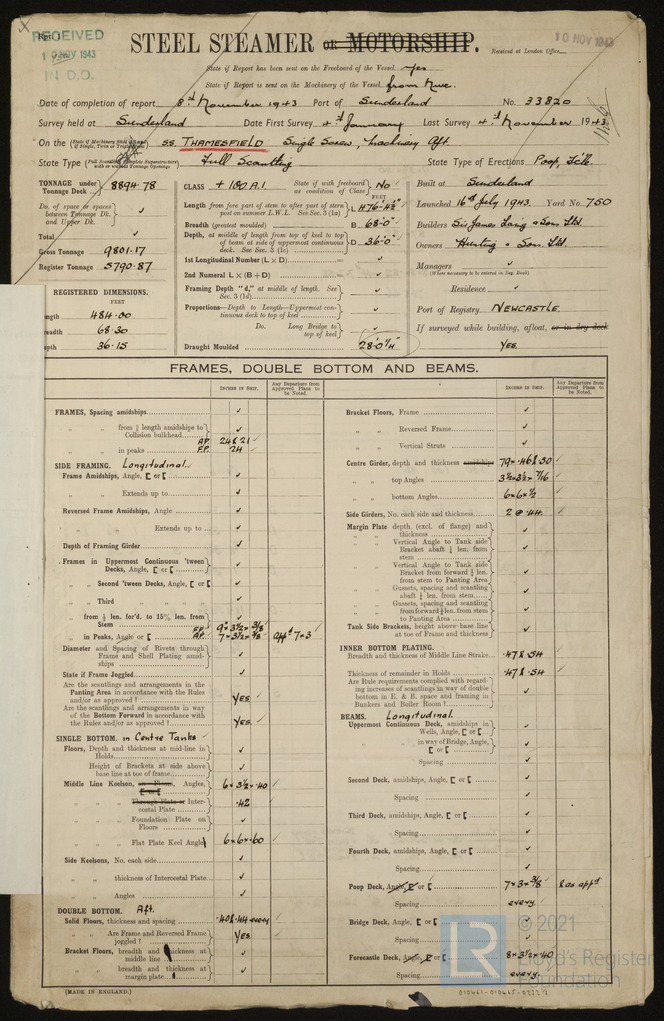 Rpt.
RECEIVED
10 NOV 1943
IN D.O.
10 NOV 1943
STEEL STEAMER or MOTORSHIP.
Received at London Office
State if Report has been sent on the Freeboard of the Vessel yes
State if Report is sent on the Machinery of the Vessel from Nwc.
Date of completion of report 8th November 1943 Port of Sunderland No. 33820
Survey held at Sunderland Date First Survey 4th January Last Survey 4th November 1943
On the (State if Machinery fitted Aft and if Single, Twin or Triple Screw) SS. THAMESFIELD Single Screw, Machinery Aft.
State Type (Full Scantling, Complete Superstructure with or without Tonnage Openings) Full Scantling State Type of Erections Poop, Fc'le.
TONNAGE under Tonnage Deck 8894.78
Do. of space or spaces between Tonnage Dk. and Upper Dk.
Total
Gross Tonnage 9801.17
Register Tonnage 5790.87
REGISTERED DIMENSIONS.
FEET
ength 484.00
readth 68.30
epth 36.15
CLASS + 100 A.1 State if with freeboard as condition of Class No
FEET
Length from fore part of stem to after part of stern post on summer L.W.L. See Sec. 3 (1a) L 476'-4½"
Breadth (greatest moulded) B 68'-0"
Depth, at middle of length from top of keel to top of beam at side of uppermost continuous deck. See Sec. 3 (1c) D 36'-0"
1st Longitudinal Number (L × D)
2nd Numeral L × (B + D)
Framing Depth "d," at middle of length. See Sec. 3 (1d)
Proportions—Depth to Length—Uppermost continuous deck to top of keel
Do. Long Bridge to top of keel
Draught Moulded 28'-0¼"
Built at Sunderland
Launched 16th July 1943 Yard No. 750
Builders Sir James Laing & Sons Ltd.
Owners Hunting & Son. Ltd.
Managers
(Where necessary to be entered in Reg. Book)
Residence
Port of Registry NEWCASTLE.
If surveyed while building, afloat, or in dry dock
Yes.
FRAMES, DOUBLE BOTTOM AND BEAMS.
INCHES IN SHIP.
Any Departure from Approved Plans to be Noted.
INCHES IN SHIP.
Any Departure from Approved Plans to be Noted.
FRAMES, Spacing amidships
" " from ⅗ length amidships to Collision bulkhead
" " in peaks A.P. 24 & 21 F.P. 24
SIDE FRAMING. Longitudinal
Frame Amidships, Angle, [ or [
" " Extends up to
Reversed Frame Amidships, Angle
" " Extends up to
Depth of Framing Girder
Frames in Uppermost Continuous 'tween Decks, Angle, [ or [
" Second 'tween Decks, Angle, [ or [
" Third " " "
" from ⅕ len. for'd. to 15% len. from Stem
" in Peaks, Angle or [ F.P. 9 × 3½ × 3/8 A.P. 7 × 3½ × 3/8 appd 7 × 3
Diameter and Spacing of Rivets through Frame and Shell Plating amidships
State if Frame Joggled
Are the scantlings and arrangements in the Panting Area in accordance with the Rules and/or as approved? Yes.
Are the scantlings and arrangements in way of the Bottom Forward in accordance with the Rules and/or as approved? Yes.
SINGLE BOTTOM. in Centre Tanks
Floors, Depth and thickness at mid-line in Holds
Height of Brackets at side above base line at toe of frame
Middle Line Keelson, on Floors, Angles, [ or [ 6 × 3½ × .40
" " Through Plate or Intercostal Plate .42
" " Foundation Plate on Floors
" " Flat Plate Keel Angle 6 × 6 × .60
Side Keelsons, No. each side
" " thickness of Intercostal Plate
" " Angles
DOUBLE BOTTOM. Aft.
Solid Floors, thickness and spacing .40 & .44 every
" " Are Frame and Reversed Frame joggled? Yes
Bracket Floors, breadth and thickness at middle line
" " breadth and thickness at margin plate
Bracket Floors, Frame
" " Reversed Frame
" " Vertical Struts
Centre Girder, depth and thickness amidships 79 × .46 & .50
" " top Angles 3½ × 3½ × 7/16
" " bottom Angles 6 × 6 × ½
Side Girders, No. each side and thickness 2 @ .44.
Margin Plate depth (excl. of flange) and thickness
" " Vertical Angle to Tank side Bracket abaft ¼ len. from stem
" " Vertical Angle to Tank side Bracket from forward ¼ len. from stem to Panting Area
" " Gussets, spacing and scantling abaft ¼ len. from stem
" " Gussets, spacing and scantling from forward ¼ len. from stem to Panting Area
Tank Side Brackets, height above base line at toe of Frame and thickness
INNER BOTTOM PLATING.
Breadth and thickness of Middle Line Strake .47 & .54
Thickness of remainder in Holds .47 & .54
Are Rule requirements complied with regarding increases of scantlings in way of double bottom in E. & B. space and framing in Bunkers and Boiler Room?
BEAMS. Longitudinal.
Uppermost Continuous Deck, amidships in Wells, Angle, [ or [
" " in way of Bridge, Angle, [ or [
Spacing
Second Deck, amidships, Angle, [ or [
Spacing
Third Deck, amidships, Angle, [ or [
Spacing
Fourth Deck, amidships, Angle, [ or [
Spacing
Poop Deck, Angle, [ or [ 7 × 3 × 3/8 & as appd
Spacing every.
Bridge Deck, Angle, [ or [
Spacing
Forecastle Deck, Angle, [ or [ 8 × 3½ × .40
Spacing every.
(MADE IN ENGLAND.)
© 2021
LR
Lloyd's Register
Foundation